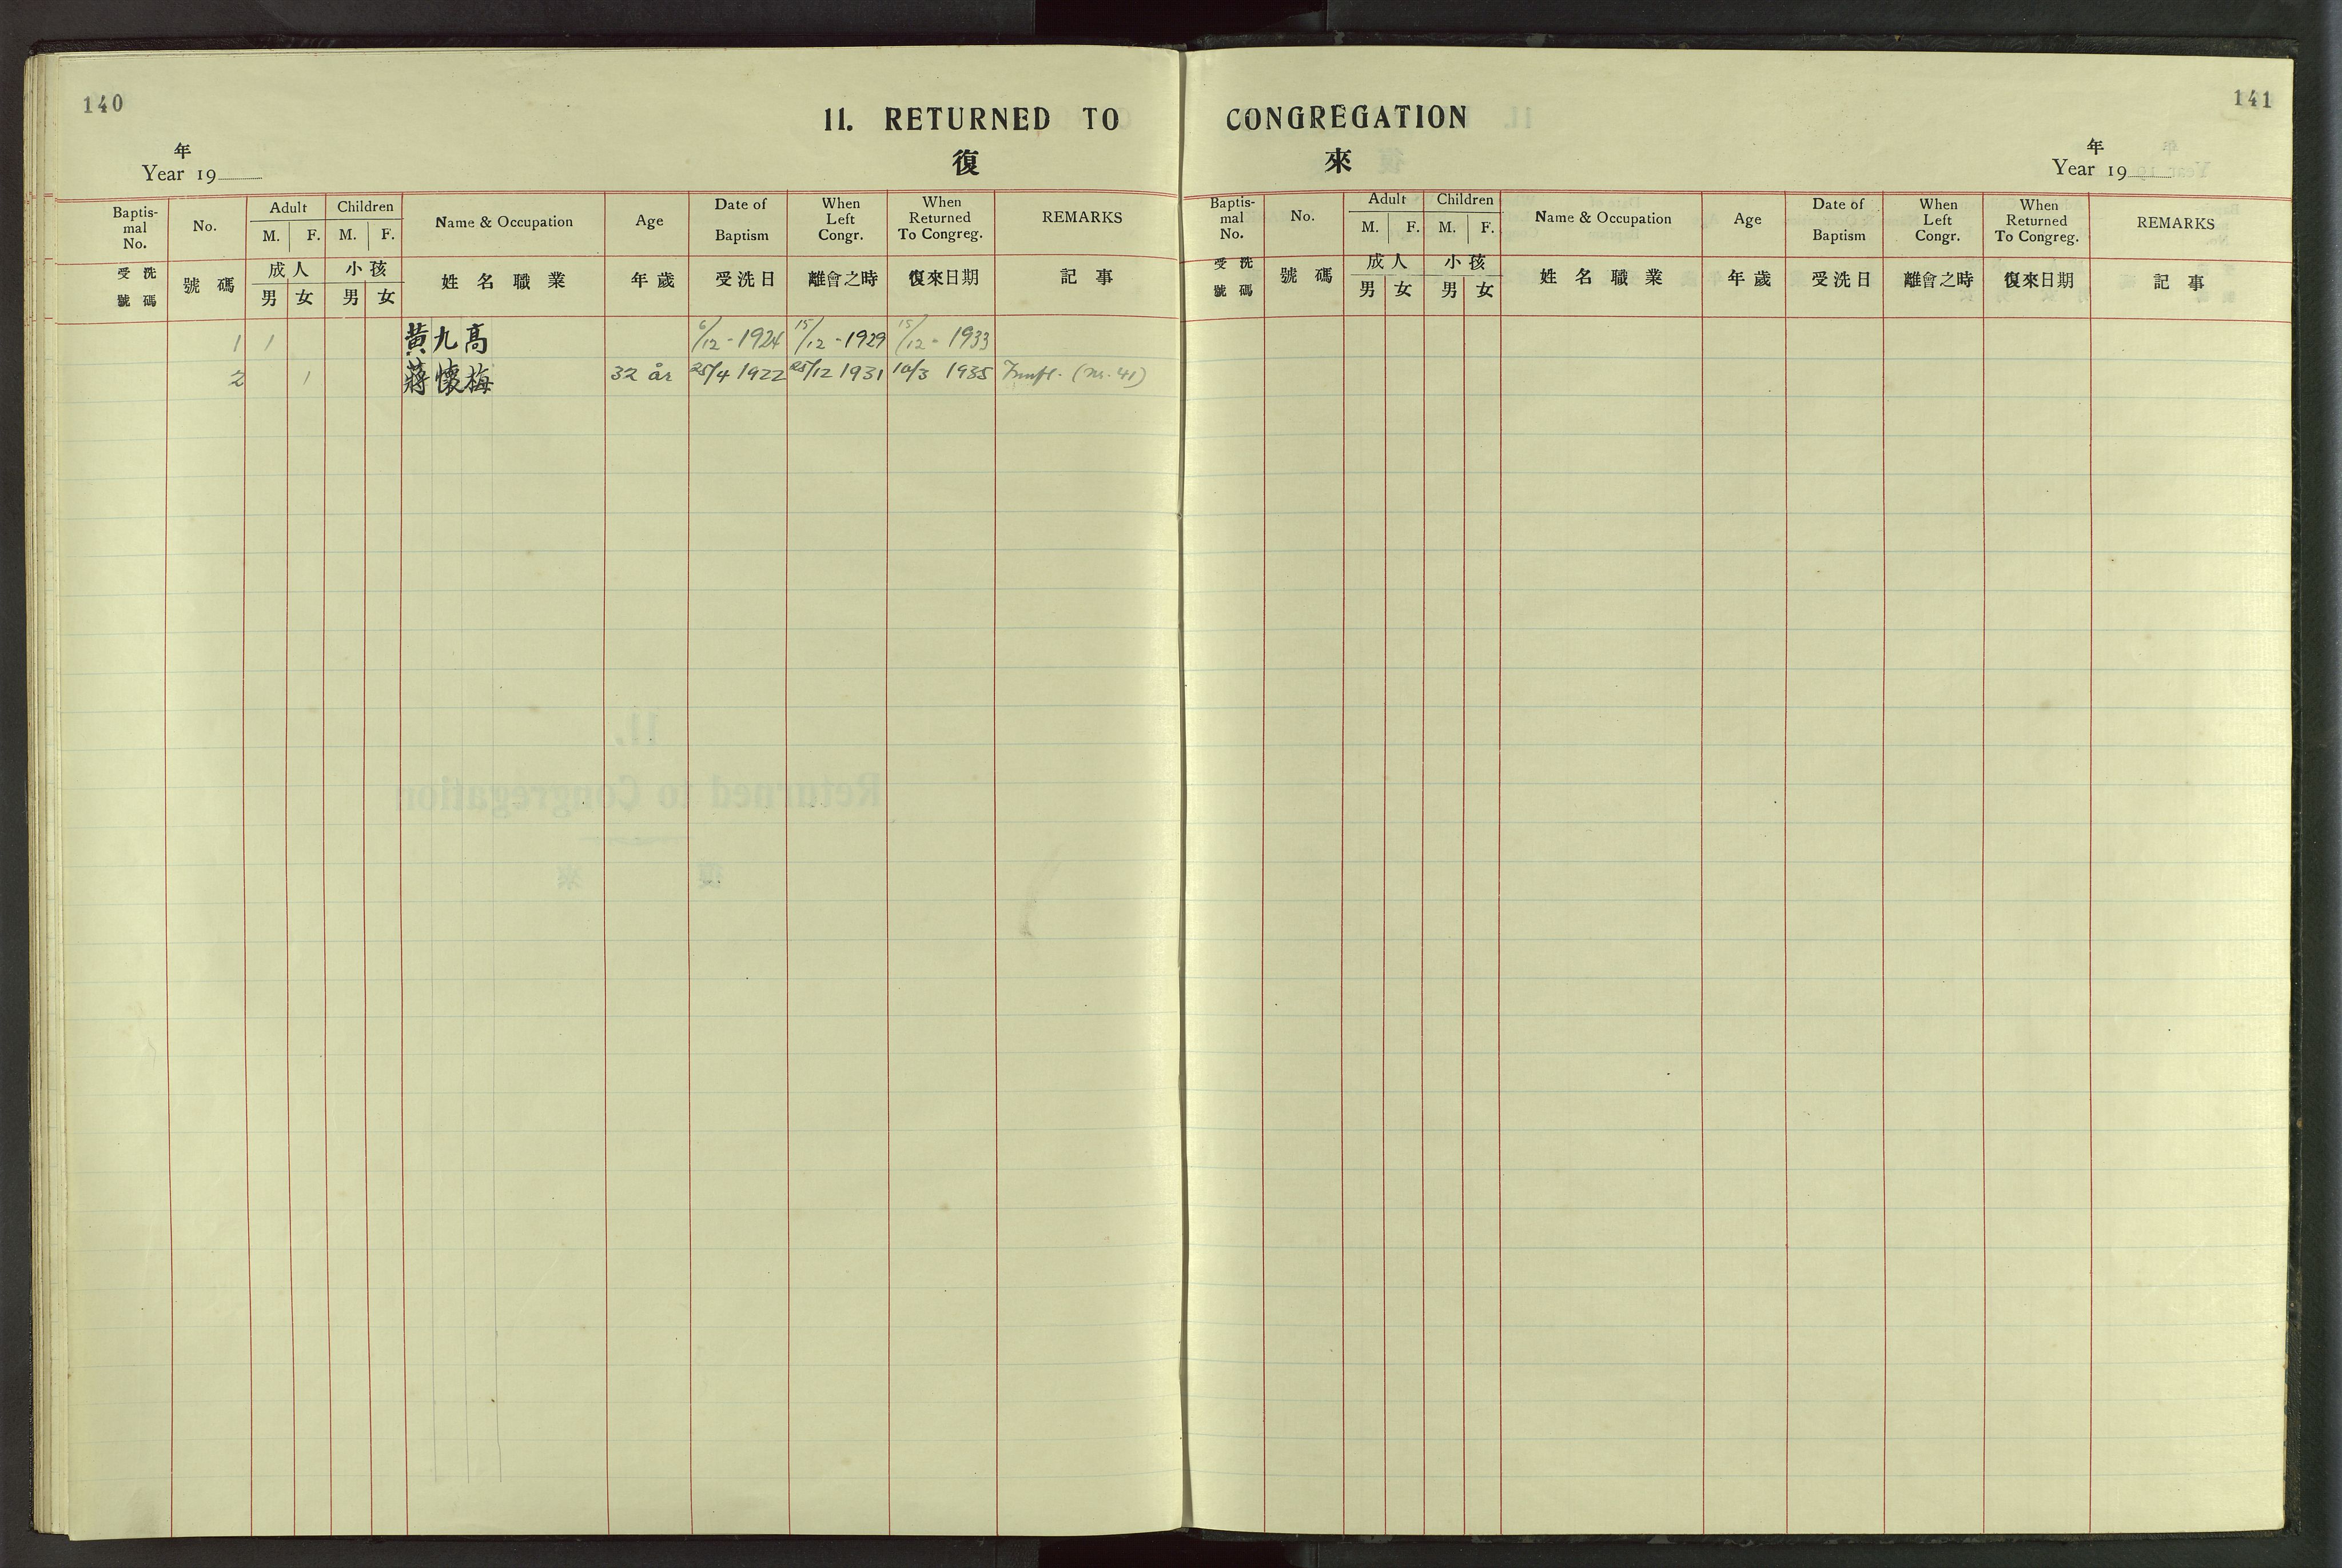 140
11. RETURNED TO
年
復
Year 19
Baptis-mal No. No. Adult Children Name & Occupation Age Date of Baptism When Left Congr. When Returned To Congreg. REMARKS
M. F. M. F.
受洗號碼 號碼 成人 小孩 姓名職業 年歲 受洗日 離會之時 復來日期 記事
男 女 男 女
1 1 黄九高 6/12 - 1924 15/12 - 1929 15/12 - 1933
2 1 蔣懷梅 32 år 25/4 1922 25/12 1931 10/3 1935 (nr. 41)
141
CONGREGATION
年
來
Year 19
Baptis-mal No. No. Adult Children Name & Occupation Age Date of Baptism When Left Congr. When Returned To Congreg. REMARKS
M. F. M. F.
受洗號碼 號碼 成人 小孩 姓名職業 年歲 受洗日 離會之時 復來日期 記事
男 女 男 女